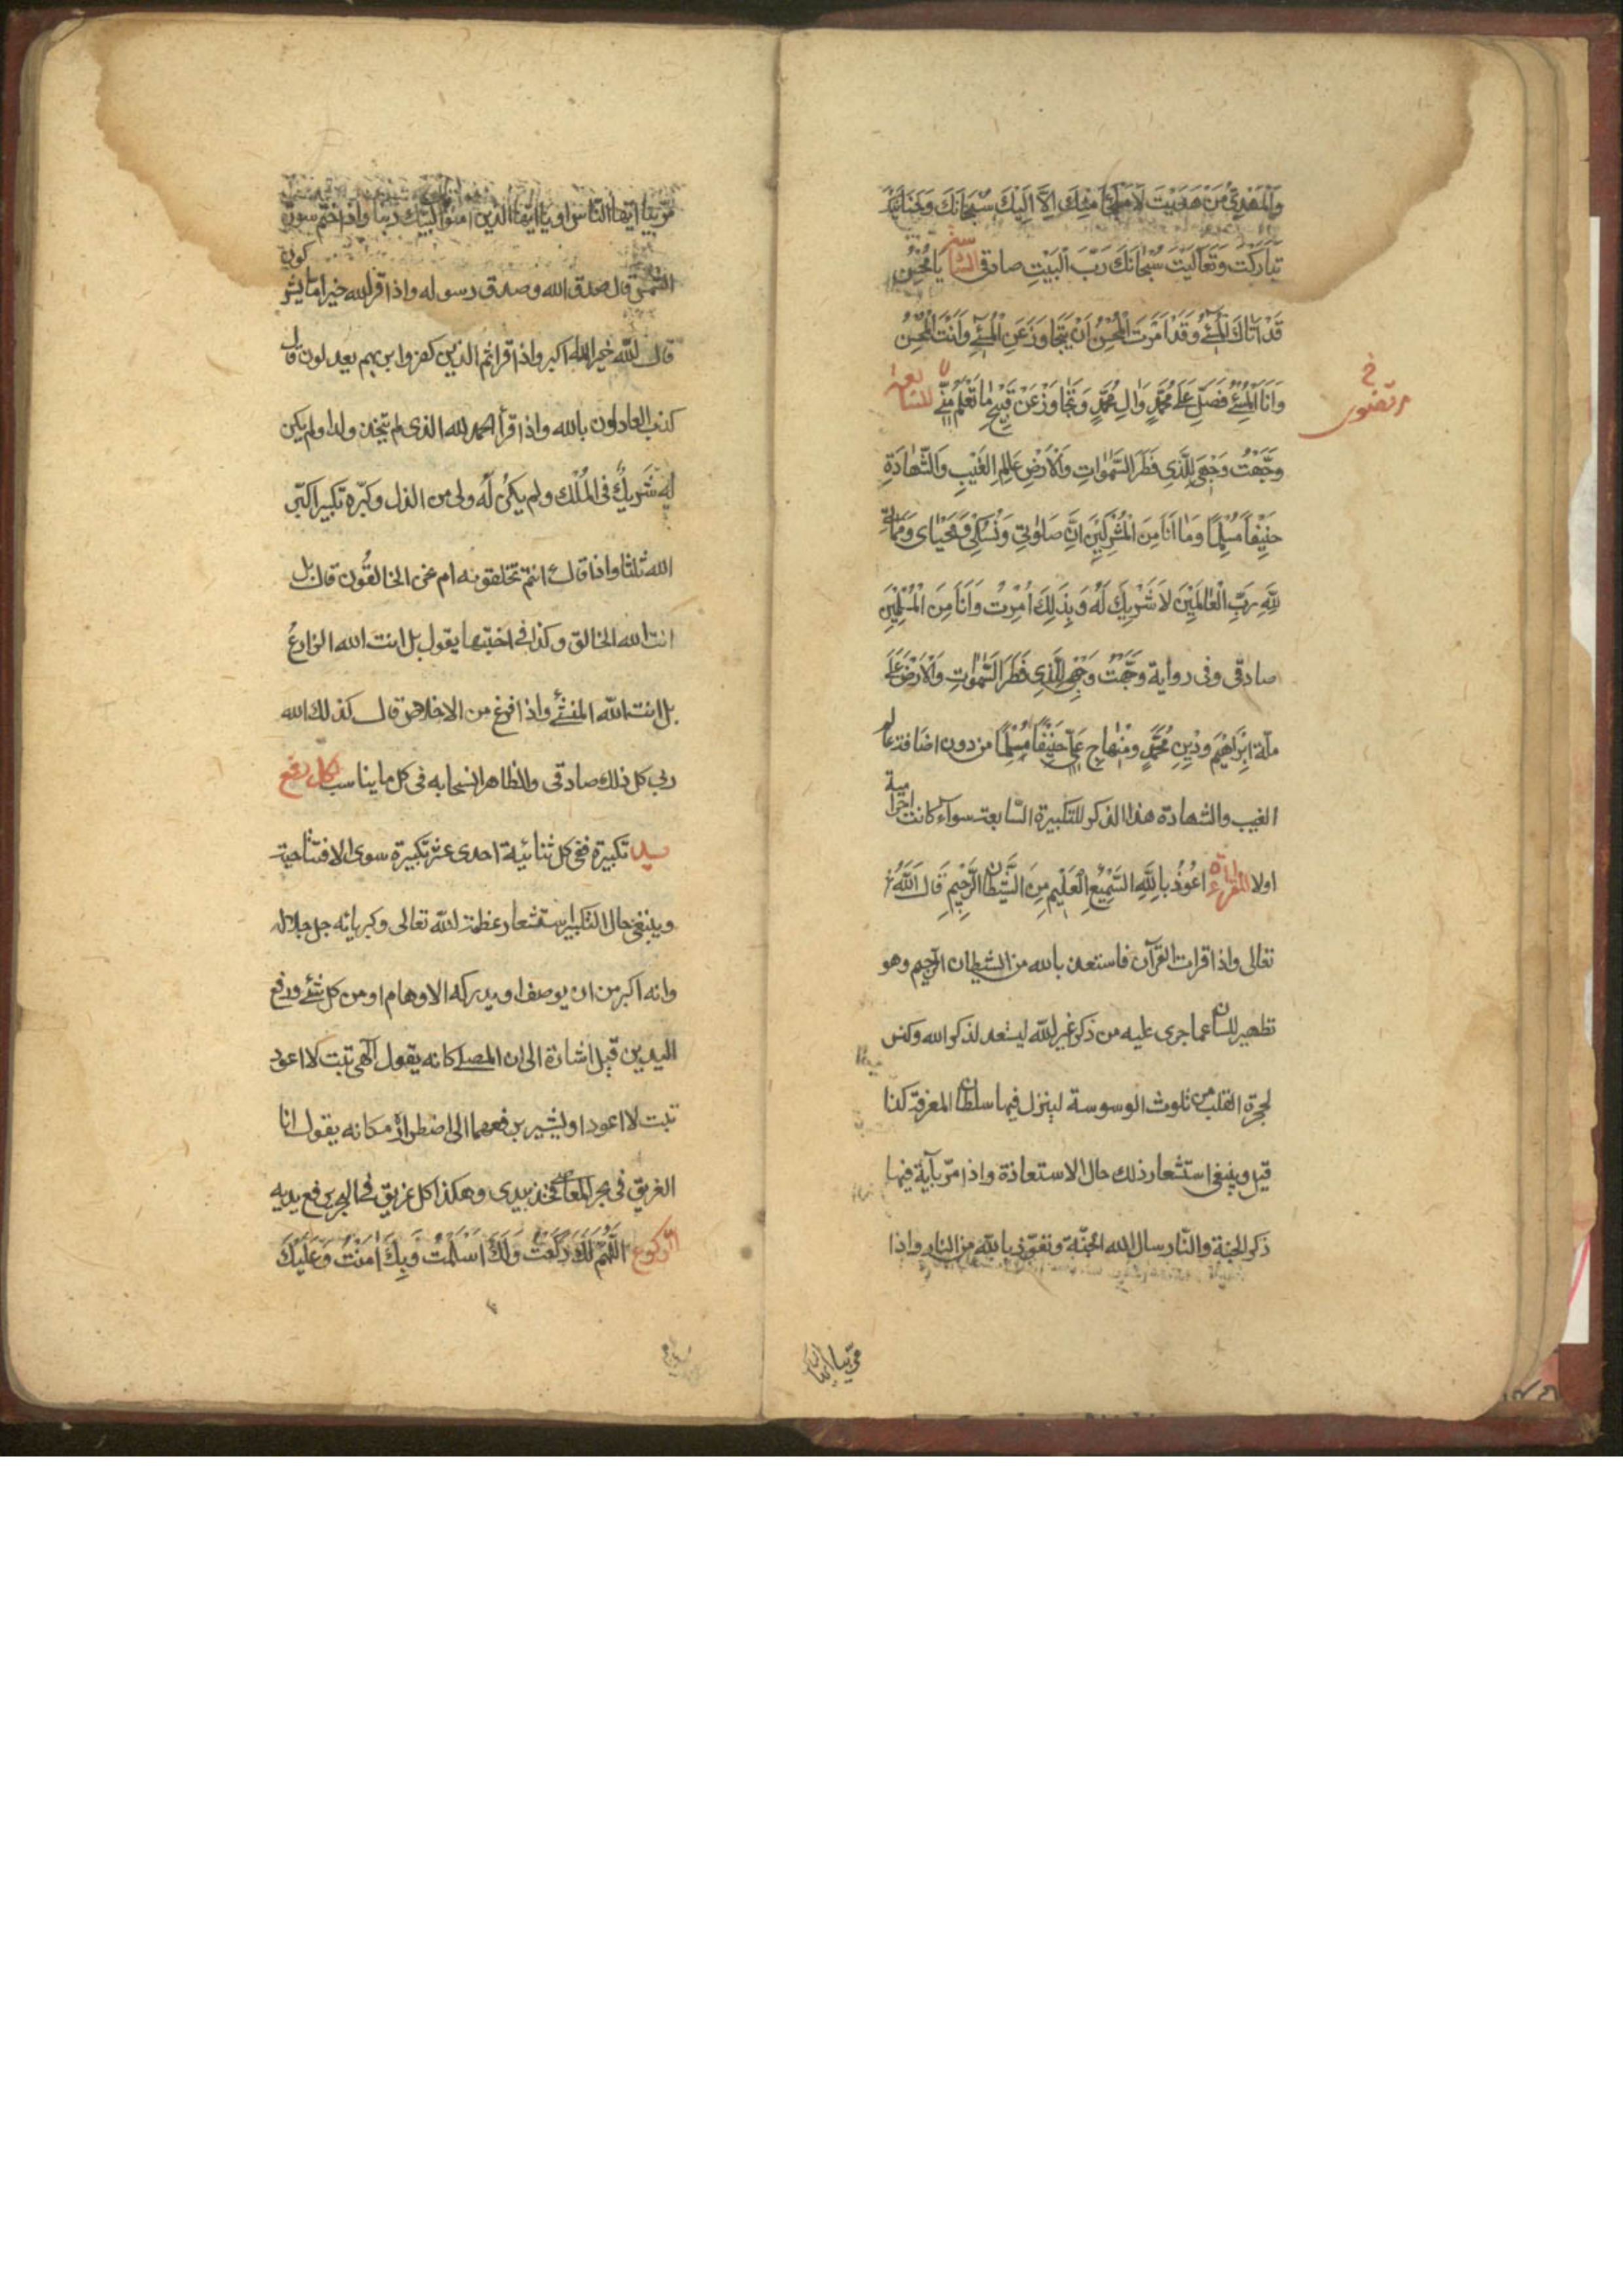 وَالْمَهْدِيُّ مَنْ هَدَيْتَ لَا مَلْجَأَ مِنْكَ اِلَّا اِلَيْكَ سُبْحَانَكَ وَحَنَانَيْكَ
تَبَارَكْتَ وَتَعَالَيْتَ سُبْحَانَكَ رَبَّ الْبَيْتِ صادقى للسّادسة يَا مُحْسِنُ
قَدْ اَتَاكَ الْمُسِيْئُ وَقَدْ اَمَرْتَ الْمُحْسِنَ اَنْ يَتَجَاوَزَ عَنِ الْمُسِيْئِ وَاَنْتَ الْمُحْسِنُ
وَاَنَا الْمُسِيْئُ فَصَلِّ عَلَى مُحَمَّدٍ وَالِ مُحَمَّدٍ وَتَجَاوَزْ عَنْ قَبِيْحِ مَا تَعْلَمُ مِنِّي للسّابعة
مرتضوى
وَجَّهْتُ وَجْهِيَ لِلَّذِي فَطَرَ السَّمٰوَاتِ وَالْاَرْضِ عَالِمِ الْغَيْبِ وَالشَّهَادَةِ
حَنِيْفاً مُسْلِمًا وَمَا اَنَا مِنَ الْمُشْرِكِيْنَ اِنَّ صَلَوٰتِي وَنُسُكِي وَمَحْيَايَ وَمَمَاتِي
لِلّٰهِ رَبِّ الْعَالَمِيْنَ لَا شَرِيْكَ لَهُ وَبِذَلِكَ اُمِرْتُ وَاَنَا مِنَ الْمُسْلِمِيْنَ
صادقى وفى رواية وَجَّهْتُ وَجْهِيَ لِلَّذِي فَطَرَ السَّمٰوَاتِ وَالْاَرْضَ عَلَى
ملّة اِبْرَاهِيْمَ وَدِيْنِ مُحَمَّدٍ وَمِنْهَاجِ عَلِيٍّ حَنِيْفًا مُسْلِمًا من دون اضافة عالم
الغيب والشهادة هذا الذكر للتكبيرة السّابعة سواء كانت احرامية
اولا للقراءة اَعُوْذُ بِاللّٰهِ السَّمِيْعِ الْعَلِيْمِ مِنَ الشَّيْطَانِ الرَّجِيْمِ قَالَ اللّٰهُ
تعالى واذا قرات القرآن فاستعذ بالله من الشيطان الرجيم وهو
تطهير للسان عما جرى عليه من ذكر غير الله ليستعد لذكر الله وكنس
لحجرة القلب من تلوث الوسوسة لينزل فيها سلطان المعرفة كذا
قيل وينبغى استشعار ذلك حال الاستعاذة واذا مرّ بآية فيها
ذكر الجنة والنّار سال الله الجنّة وتعوّذ بالله من النار واذا
مرّ بيا ايّها
مرّ بيا ايّها النّاس او يا ايّها الّذين امنوا لبّيك ربنا واذا ختم سورة
الشمس قال صدق الله وصدق رسوله واذا قرا الله خير اما يشركون
قال الله خير الله اكبر واذا قرا ثم الذين كفروا بربهم يعدلون قال
كذب العادلون بالله واذا قرأ الحمد لله الذى لم يتخذ ولدا ولم يكن
له شَرِيكٌ فى الْمُلْك ولم يكن له ولى من الذل وكبّره تكبيرا كبّر
الله ثلثا واذا قال ءانتم تخلقونه ام نحن الخالقُون قال بل
انت الله الخالق وكذا فى اختيها يقول بل انت الله الزارعُ
بل انت الله المنشئُ واذا فرغ من الاخلاص قال كذلك الله
ربى كل ذلك صادقى والظاهر انسحابه فى كل ما يناسب لكل رفع
يد تكبيرة ففى كل ثنائية احدى عشر تكبيرة سوى الافتتاحية
وينبغى حال التكبير استشعار عظمة الله تعالى وكبريائه جل جلاله
وانه اكبر من ان يوصف او يدركه الاوهام او من كل شئ ورفع
اليدين قيل اشارة الى ان المصلى كانه يقول الهى تبت لا اعود
تبت لا اعود او يشير برفعهما الى اضطراره كانه يقول انا
الغريق فى بحر المعاصى فخذ بيدى وهكذا كل غريق فى البحر يرفع يديه
للركوع اَللّٰهُمَّ لَكَ رَكَعْتُ وَلَكَ اَسْلَمْتُ وَبِكَ اٰمَنْتُ وَعَلَيْكَ